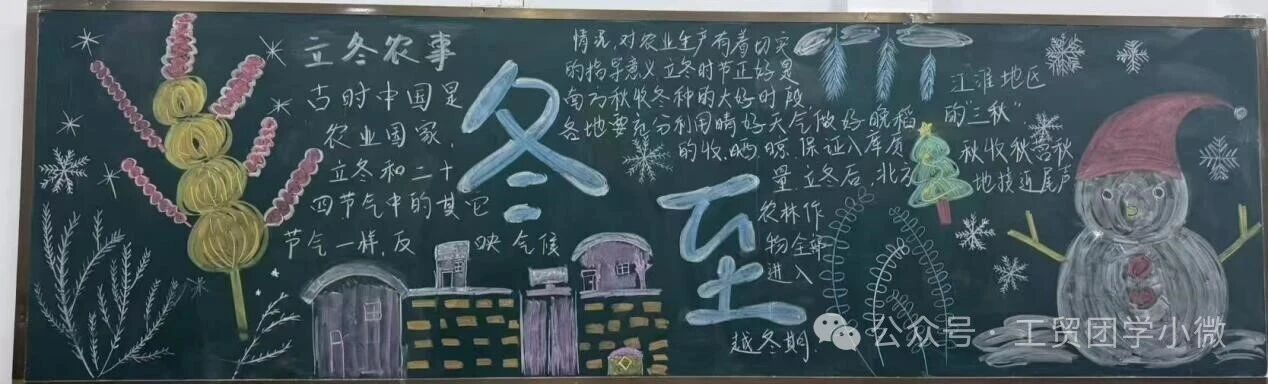 立冬农事
古时中国是
农业国家,
立冬和二十
四节气中的其它
节气一样,反映气候
冬至
情况,对农业生产有着切实
的指导意义立冬时节正好是
南方秋收冬种的大好时段,
各地要充分利用晴好天气做好晚稻
的收.晒晾.保证入库质
量.立冬后,北方
农林作
物全部
进入
越冬期.
江淮地区
的"三秋"
秋收秋营秋
地接近尾声
公众号·工贸团学小微